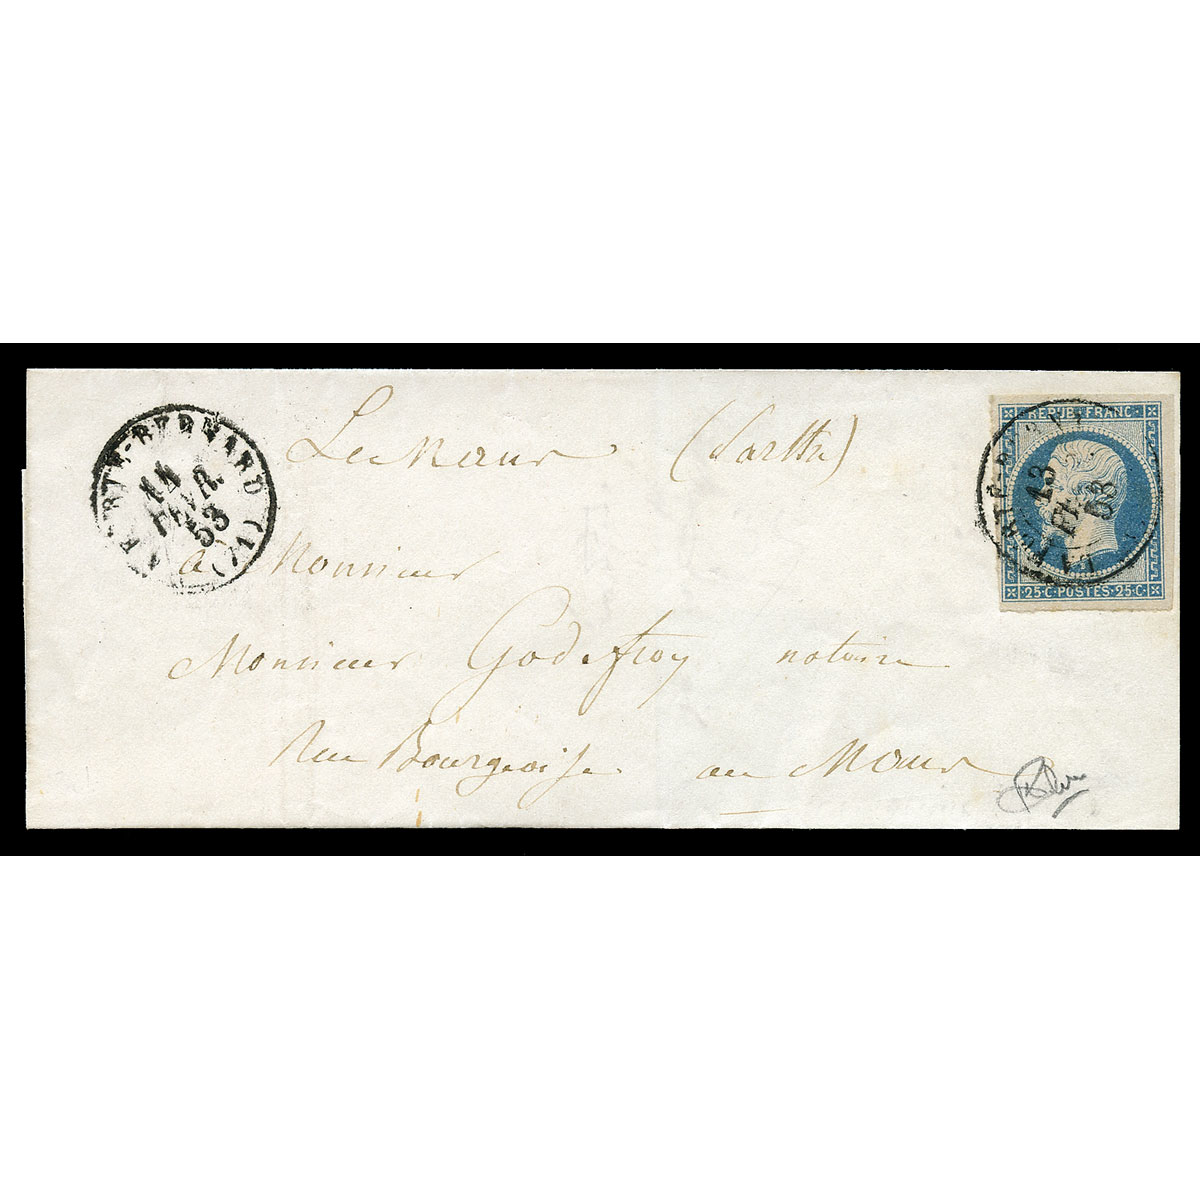 Le Mans (Sarthe)
REPUB. FRANC.
FERTÉ-BERNARD (71)
14
FEVR.
53
13
FE
53
25·C·POSTES·25·C
a Monsieur
Monsieur Godefroy notaire
Rue Bourgeoise au Mans